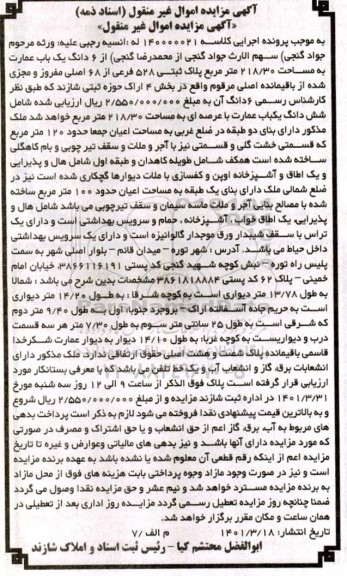 آگهی مزایده اموال غیر منقول (اسناد ذمه)
«آگهی مزایده اموال غیر منقول»
به موجب پرونده اجرایی کلاسه ۱۴۰۰۰۰۰۲۱ له :انسیه رجبی علیه: ورثه مرحوم
جواد گنجی) سهم الارث جواد گنجی از محمدرضا گنجی) از ۶ دانگ یک باب عمارت
به مساحت ۲۱۸/۳۰ متر مربع پلاک ثبتی ۵۲۸ فرعی از ۶۸ اصلی مفروز و مجزی
شده از باقیمانده اصلی مرقوم واقع در بخش ۴ اراک حوزه ثبتی شازند که طبق نظر
کارشناس رسمی ۶دانگ آن به مبلغ ۲/۵۵۰/۰۰۰/۰۰۰ ریال ارزیابی شده شامل
شش دانگ یکباب عمارت با عرصه ای به مساحت ۲۱۸/۳۰ متر مربع خواهد شد ملک
مذکور دارای بنای دو طبقه در ضلع غربی به مساحت اعیان جمعا حدود ۱۲۰ متر مربع
که قسمتی خشت گلی و قسمتی نیز با آجر و ملات و سقف تیر چوبی و بام کاهگلی
ساخته شده است همکف شامل طویله کاهدان و طبقه اول شامل هال و پذیرایی
و یک اطاق و آشپزخانه اوپن و کفسازی با ملات دیوارها گچکاری شده است نیز در
ضلع شمالی ملک دارای بنای یک طبقه به مساحت اعیان حدود ۱۰۰ متر مربع ساخته
شده با مصالح بنایی آجر و ملات ماسه سیمان و سقف تیرچوبی می باشد شامل هال و
پذیرایی، یک اطاق خواب، آشپزخانه، حمام و سرویس بهداشتی است و دارای یک
تراس با سقف شیبدار ورق موجدار گالوانیزه است و دارای یک سرویس بهداشتی
داخل حیاط می باشد. آدرس : شهر توره -میدان قائم - بلوار اصلی شهر به سمت
پلیس راه توره- نبش کوچه شهید گنجی کد پستی ۳۸۶۶۱۱۶۱۹۱، خیابان امام
خمینی- پلاک ۶۲ کد پستی ۳۸۶۱۸۱۸۸۸۴ مشخصات بدین شرح می باشد : شمالا
به طول ۱۳/۷۸ متر دیواری است به کوچه شرقا : به طول ۱۴/۲۰ متر دیواری
است به حریم جاده آسفالته اراک - بروجرد جنوبا: اول به طول ۹/۴۰ متر دوم
که شرقی است به طول ۲۵ سانتی متر سوم به طول ۷/۳۰ متر هر سه قسمت
درب و دیواریست به کوچه غربا: به طول ۱۴/۱۰ دیوار به دیوار عمارت شکرخدا
قاسمی باقیمانده پلاک شصت و هشت اصلی حقوق ارتفاقی ندارد. ملک مذکور دارای
انشعابات برق، گاز و انشعاب آب و یک خط تلفن می باشد که با معرفی بستانکار مورد
ارزیابی قرار گرفته است پلاک فوق الذکر از ساعت ۹ الی ۱۲ روز سه شنبه مورخ
۱۴۰۱/۳/۳۱ در اداره ثبت شازند مزایده و از مبلغ ۲/۵۵۰/۰۰۰/۰۰۰ ریال شروع
و به بالاترین قیمت پیشنهادی نقدا فروخته می شود لازم به ذکر است پرداخت بدهی
های مربوط به آب، برق، گاز اعم از حق انشعاب و یا حق اشتراک و مصرف در صورتی
که مورد مزایده دارای آنها باشد و نیز بدهی های مالیاتی وعوارض و غیره تا تاریخ
مزایده اعم از اینکه رقم قطعی آن معلوم شده یا نشده باشد به عهده برنده مزایده
است و نیز در صورت وجود مازاد وجوه پرداختی بابت هزینه های فوق از محل مازاد
به برنده مزایده مسترد خواهد شد و نیم عشر و حق مزایده نقدا وصول می گردد
ضمنا چنانچه روز مزایده تعطیل رسمی گردد مزایده روز اداری بعد از تعطیلی در
همان ساعت و مکان مقرر برگزار خواهد شد.
تاریخ انتشار: ۱۴۰۱/۳/۱۸ م الف /۷
ابوالفضل محتشم کیا - رئیس ثبت اسناد و املاک شازند